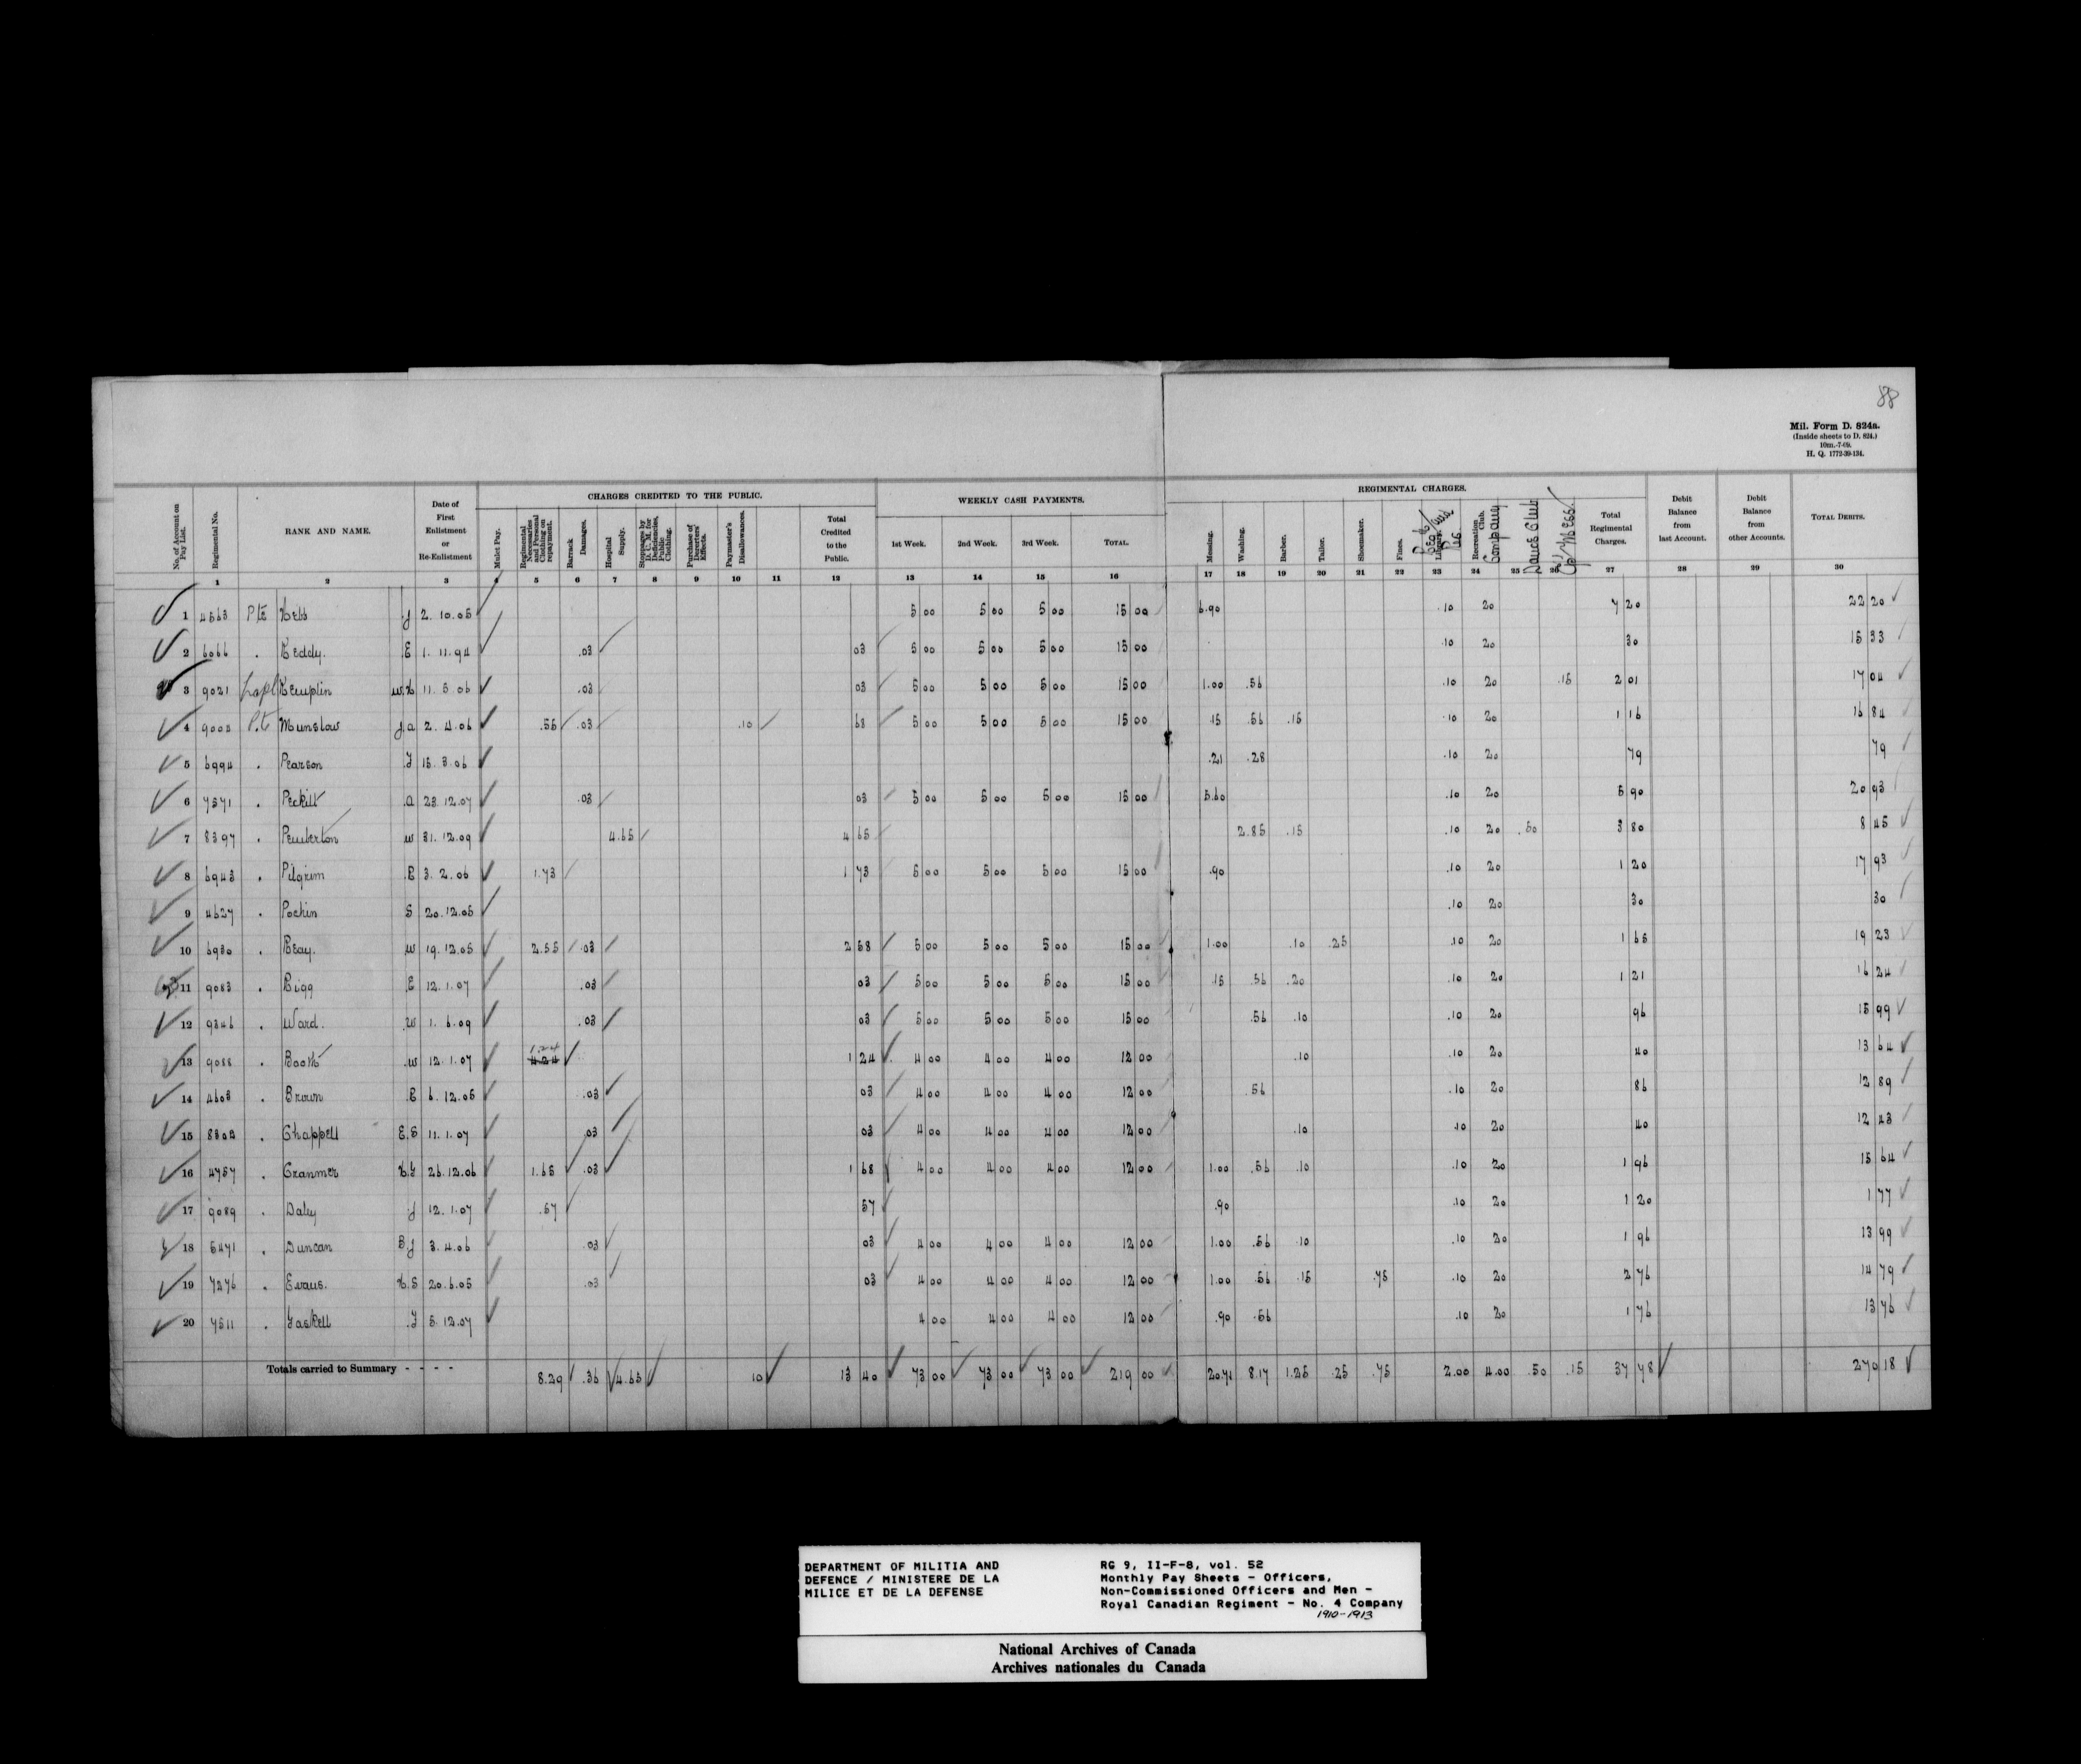 88
Mil. Form D. 824a.
(Inside sheets to D. 824.)
10m.-7-09.
H. Q. 1772-39-134.
CHARGES CREDITED TO THE PUBLIC. WEEKLY CASH PAYMENTS. REGIMENTAL CHARGES.
No. of Account on Pay List. Regimental No. RANK AND NAME. Date of First Enlistment or Re-Enlistment Mulct Pay. Regimental Necessaries and Personal Clothing on repayment. Barrack Damages. Hospital Supply. Stoppages by D. C. M. for Deficiencies, Public Clothing. Purchase of Deserters' Effects. Paymaster's Disallowances. Total Credited to the Public. 1st Week. 2nd Week. 3rd Week. TOTAL. Messing. Washing. Barber. Tailor. Shoemaker. Fines. Library. Recreation Club. Company Dance Club Cpl's Mess Total Regimental Charges. Debit Balance from last Account. Debit Balance from other Accounts. TOTAL DEBITS.
1 2 3 4 5 6 7 8 9 10 11 12 13 14 15 16 17 18 19 20 21 22 23 24 25 26 27 28 29 30
1 4563 Pte Kebb J 2.10.05 5 00 5 00 5 00 15 00 6.90 .10 20 7 20 22 20
2 6066 . Keddy. E 1.11.94 .03 03 5 00 5 00 5 00 15 00 .10 20 30 15 33
3 9021 Lcpl Kemplin W.H 11.5.06 .03 03 5 00 5 00 5 00 15 00 1.00 .56 .10 20 .15 2 01 17 04
4 9004 Pte Munslow J.A 2.4.06 .55 .03 .10 68 5 00 5 00 5 00 15 00 .15 .56 .15 .10 20 1 16 16 84
5 6994 . Pearson J 15.3.06 .21 .28 .10 20 79 79
6 7571 . Peckitt A 23.12.07 .03 03 5 00 5 00 5 00 15 00 5.60 .10 20 5 90 20 93
7 8397 . Pemberton W 31.12.09 4.65 4 65 2.85 .15 .10 20 .50 3 80 8 45
8 6943 . Pilgrim E 3.2.06 1.73 1 73 5 00 5 00 5 00 15 00 .90 .10 20 1 20 17 93
9 4627 . Pochin S 20.12.05 .10 20 30 30
10 6930 . Reay. W 19.12.05 2.55 .03 2 58 5 00 5 00 5 00 15 00 1.00 .10 .25 .10 20 1 65 19 23
11 9083 . Rigg E 12.1.07 .03 03 5 00 5 00 5 00 15 00 .15 .56 .20 .10 20 1 21 16 24
12 9346 . Ward. W 1.6.09 .03 03 5 00 5 00 5 00 15 00 .56 .10 .10 20 96 15 99
13 9088 . Booth W 12.1.07 1.24 4.24 1 24 4 00 4 00 4 00 12 00 .10 .10 20 40 13 64
14 4603 . Brown E 6.12.05 .03 03 4 00 4 00 4 00 12 00 .56 .10 20 86 12 89
15 8804 . Chappell E.S 11.1.07 .03 03 4 00 4 00 4 00 12 00 .10 .10 20 40 12 43
16 4757 . Cranmer H.J 26.12.06 1.65 .03 1 68 4 00 4 00 4 00 12 00 1.00 .56 .10 .10 20 1 96 15 64
17 9089 . Daley J 12.1.07 .57 57 .90 .10 20 1 20 1 77
18 5471 . Duncan B.J 3.4.06 .03 03 4 00 4 00 4 00 12 00 1.00 .56 .10 .10 20 1 96 13 99
19 7276 . Evans. H.S 20.6.05 .03 03 4 00 4 00 4 00 12 00 1.00 .56 .15 .75 .10 20 2 76 14 79
20 7511 . Gaskell J 5.12.07 4 00 4 00 4 00 12 00 .90 .56 .10 20 1 76 13 76
Totals carried to Summary - - - - 8.29 .36 4.65 10 13 40 73 00 73 00 73 00 219 00 20.71 8.17 1.25 .25 .75 2.00 4.00 .50 .15 37 78 270 18
DEPARTMENT OF MILITIA AND
DEFENCE / MINISTERE DE LA
MILICE ET DE LA DEFENSE
RG 9, II-F-8, vol. 52
Monthly Pay Sheets - Officers,
Non-Commissioned Officers and Men -
Royal Canadian Regiment - No. 4 Company
1910-1913
National Archives of Canada
Archives nationales du Canada